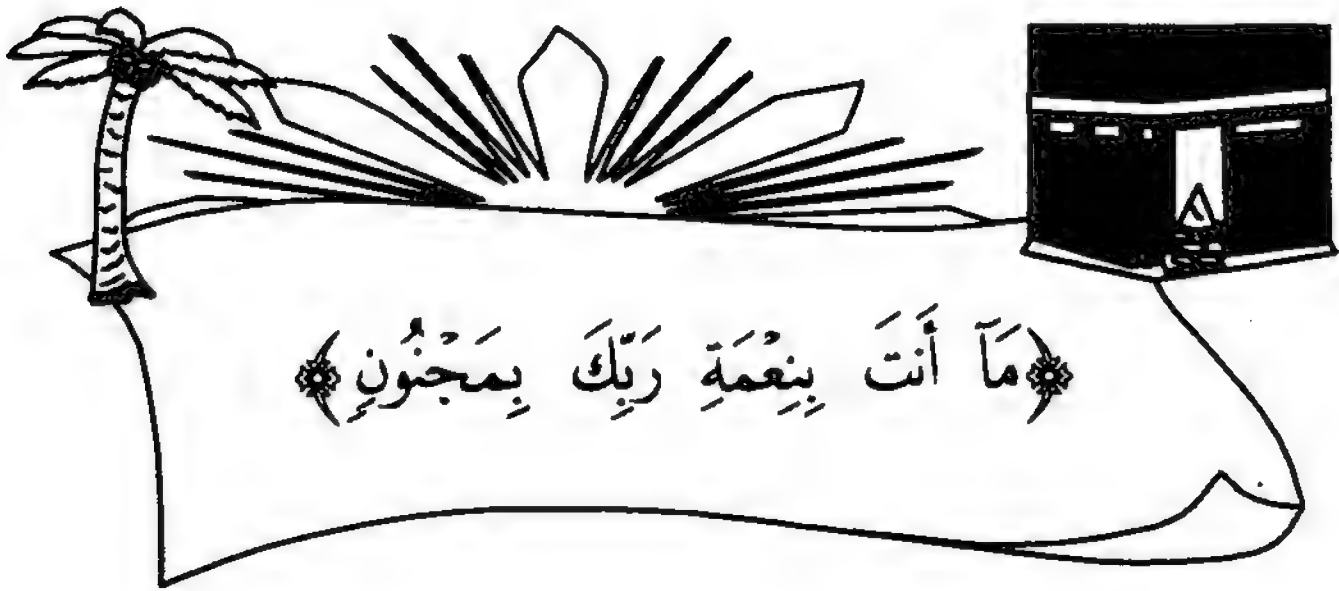 ﴿مَآ أَنتَ بِنِعْمَةِ رَبِّكَ بِمَجْنُونٍ﴾